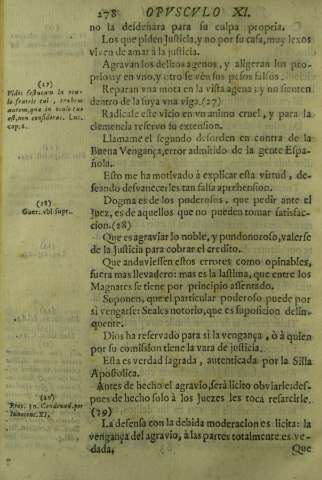 278 OPVSCVLO XI.
no la desdeñàra para su culpa propria.
Los que piden Justicia, y no por su casa, muy lexos
viven de amar à la justicia.
Agravan los delitos agenos, y aligeran los pro-
prios: y en vno, y otro se vèn sus pesos falsos.
Reparan vna mota en la vista agena; y no sienten
dentro de la suya vna viga. (27)
Radicase este vicio en vn animo cruel, y para la
clemencia reservo su extension.
Llamame el segundo desorden en contra de la
Buena Vengança, error admitido de la gente Espa-
ñola.
Esto me ha motivado à explicar esta virtud, de-
seando desvanecerles tan falsa aprehension.
Dogma es de los poderosos, que pedir ante el
Juez, es de aquellos que no pueden tomar satisfac-
cion. (28)
Que es agraviar lo noble, y pundonoroso, valerse
de la Justicia para cobrar el credito.
Que anduviessen estos errores como opinables,
fuera mas llevadero: mas es la lastima, que entre los
Magnates se tiene por principio assentado.
Suponen, que el particular poderoso puede por
sì vengarse: Seales notorio, que es suposicion delin-
quente.
Dios ha reservado para sì la vengança, ò à quien
por su comission tiene la vara de justicia.
Esta es verdad sagrada, autenticada por la Silla
Apostolica.
Antes de hecho el agravio, serà licito obviarle: des-
pues de hecho solo à los Juezes les toca resarcirle.
(29)
La defensa con la debida moderacion es licita: la
vengança del agravio, à las partes totalmente es ve-
dada,
Que
(27)
Vides festucam in ocu-
lo fratris tui, trabem
autem, quæ in oculo tuo
est, non consideras. Luc.
cap. 6.
(28)
Guer. vbi supr.
(29)
Prop. 30. Condemnad. por
Innocenc. XI.